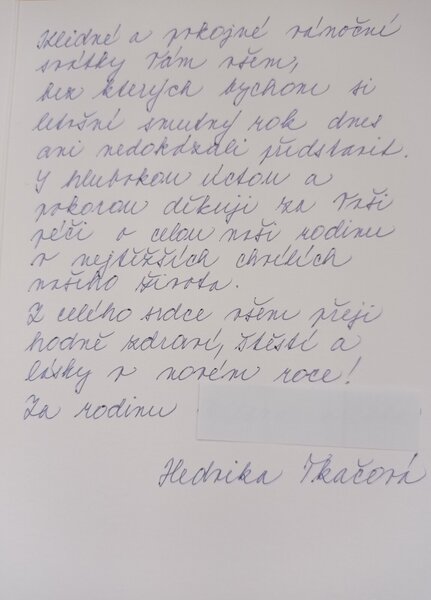 Klidné a pokojné vánoční
svátky Vám všem,
bez kterých bychom si
letošní smutný rok dnes
ani nedokázali představit.
S hlubokou úctou a
pokorou děkuji za Vaši
péči o celou naši rodinu
v nejtěžších chvílích
našeho života.
Z celého srdce všem přeji
hodně zdraví, štěstí a
lásky v novém roce!
Za rodinu
Hedvika Tkačová